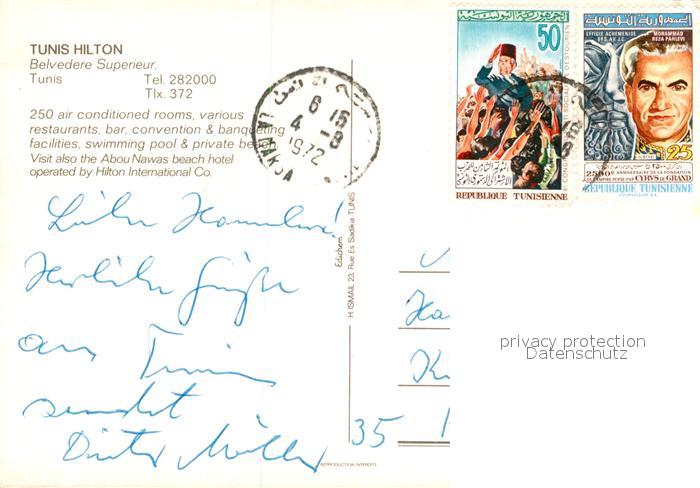 TUNIS HILTON
Belvedere Superieur,
Tunis Tel. 282000
Tlx. 372
250 air conditioned rooms, various
restaurants, bar, convention & banqueting
facilities, swimming pool & private beach
Visit also the Abou Nawas beach hotel
operated by Hilton International Co.
6 15
4 -8
1972
Edichem
H. ISMAIL 23, Rue Es Sadikia TUNIS
REPRODUCTION INTERDITE
الجمهورية التونسية
50
REPUBLIQUE TUNISIENNE
الجمهورية التونسية
EFFIGIE ACHEMENIDE
MOHAMMAD
REZA PAHLEVI
25
2500e ANNIVERSAIRE DE LA FONDATION
DE L'EMPIRE PERSE PAR CYRUS LE GRAND
REPUBLIQUE TUNISIENNE
Herzliche Grüße
aus Tunis
sendet
Dieter Müller
35
privacy protection
Datenschutz